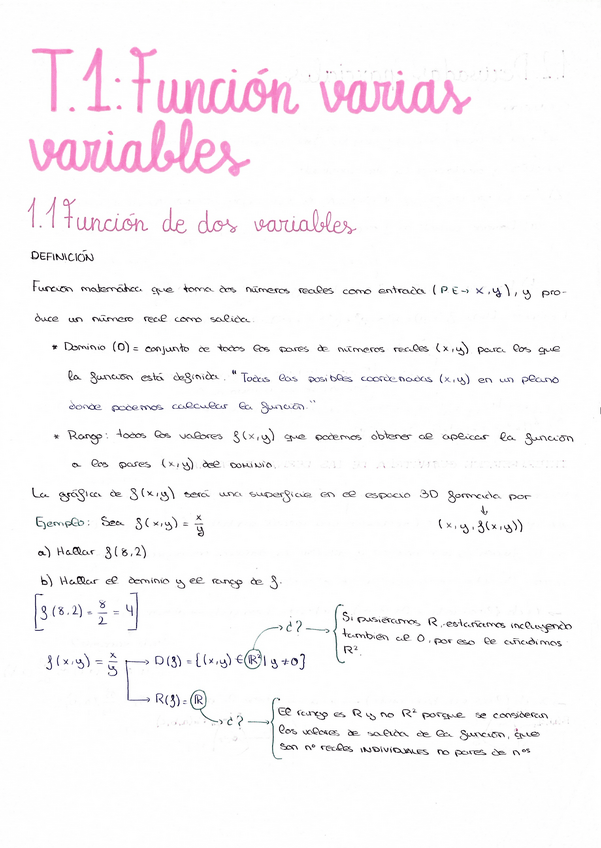 T.1: Función varias
variables
1.1 Función de dos variables
DEFINICIÓN
Función matemática que toma dos números reales como entrada (P E→ x,y), y pro-
duce un número real como salida.
* Dominio (D) = conjunto de todos los pares de números reales (x,y) para los que
la función está definida. "Todas las posibles coordenadas (x,y) en un plano
donde podemos calcular la función."
* Rango: todos los valores f(x,y) que podemos obtener al aplicar la función
a los pares (x,y) del DOMINIO.
La gráfica de f(x,y) será una superficie en el espacio 3D formada por
↓
Ejemplo: Sea f(x,y) = x/y (x,y,f(x,y))
a) Hallar f(8,2)
b) Hallar el dominio y el rango de f.
[f(8,2) = 8/2 = 4]
Si pusieramos R, estaríamos incluyendo
también al 0, por eso le añadimos
R².
→ ¿? →
f(x,y) = x/y → D(f) = {(x,y) ∈ ℝ² | y ≠ 0}
→ R(f) = ℝ
→ ¿? →
El rango es R y no R² porque se consideran
los valores de salida de la función, que
son nº reales INDIVIDUALES no pares de nºs